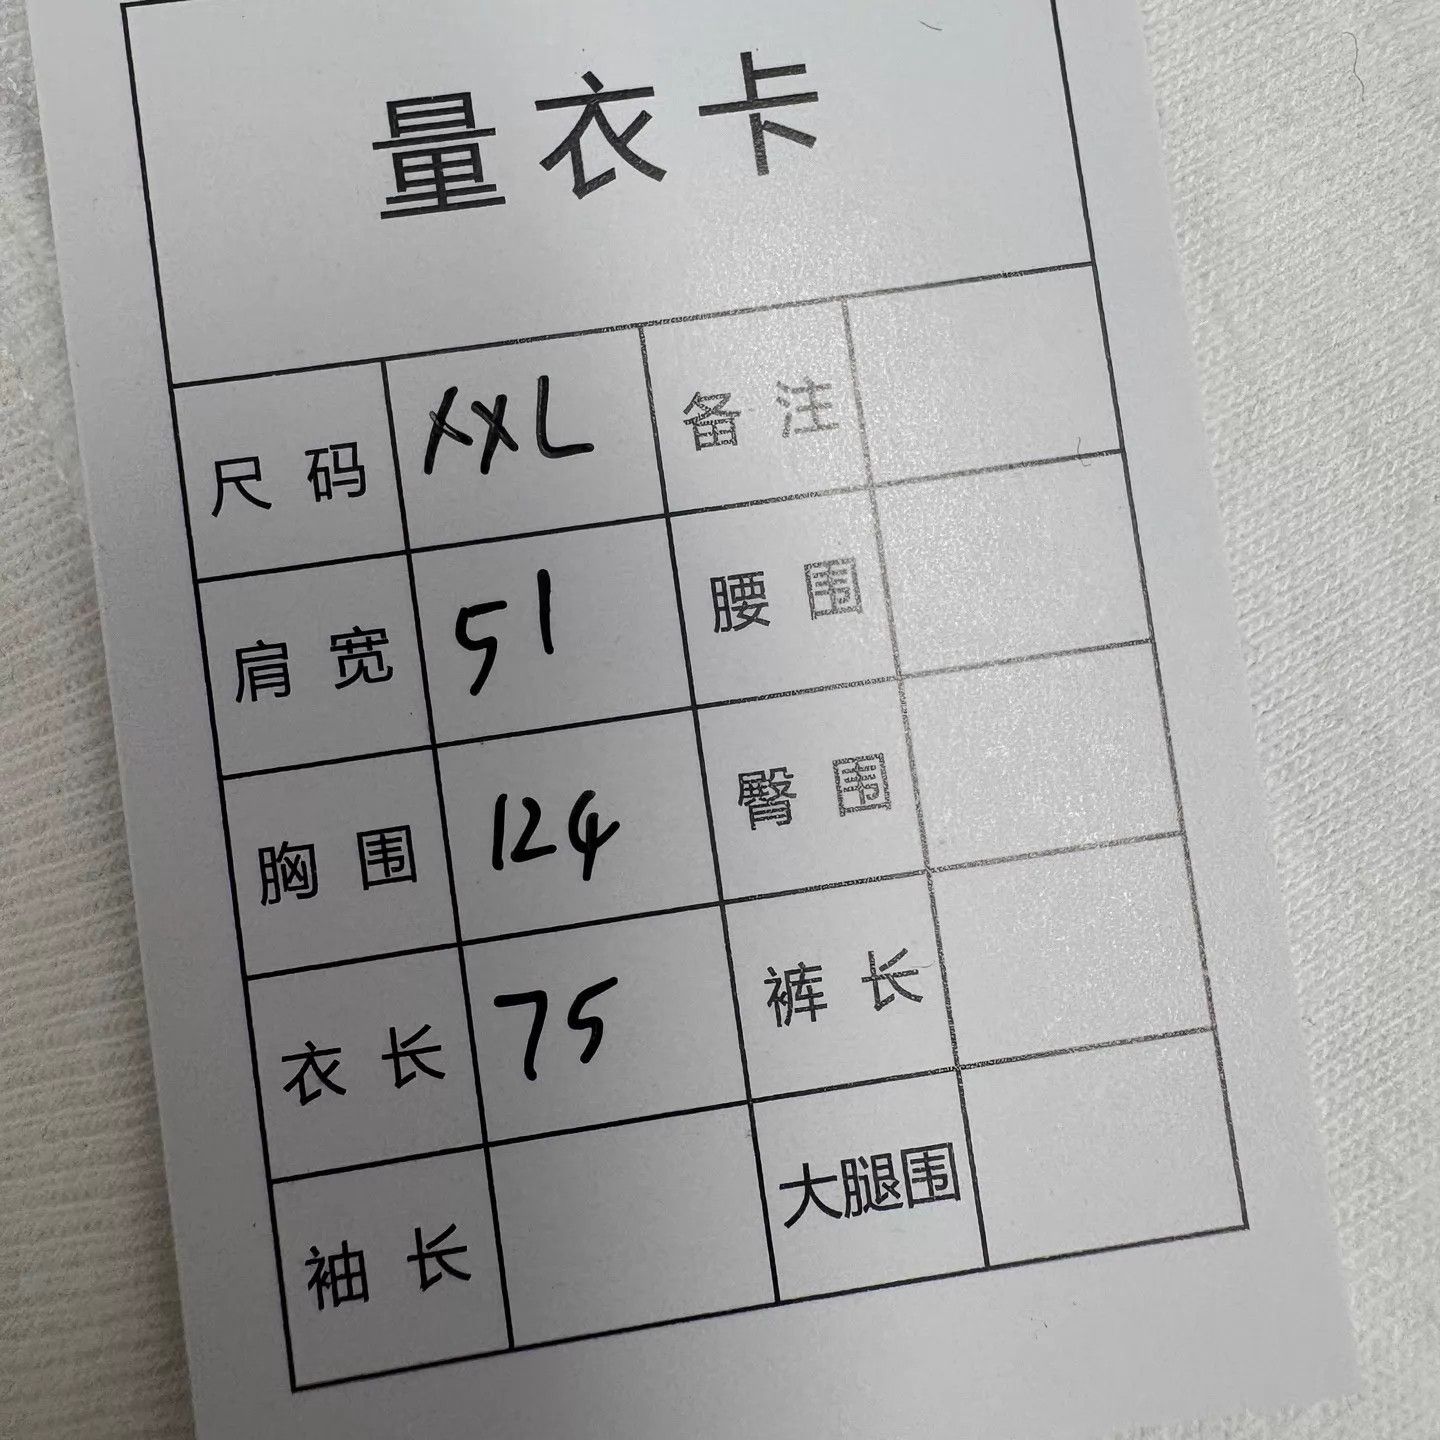 量衣卡
尺码 XXL 备注
肩宽 51 腰围
胸围 124 臀围
衣长 75 裤长
袖长 大腿围